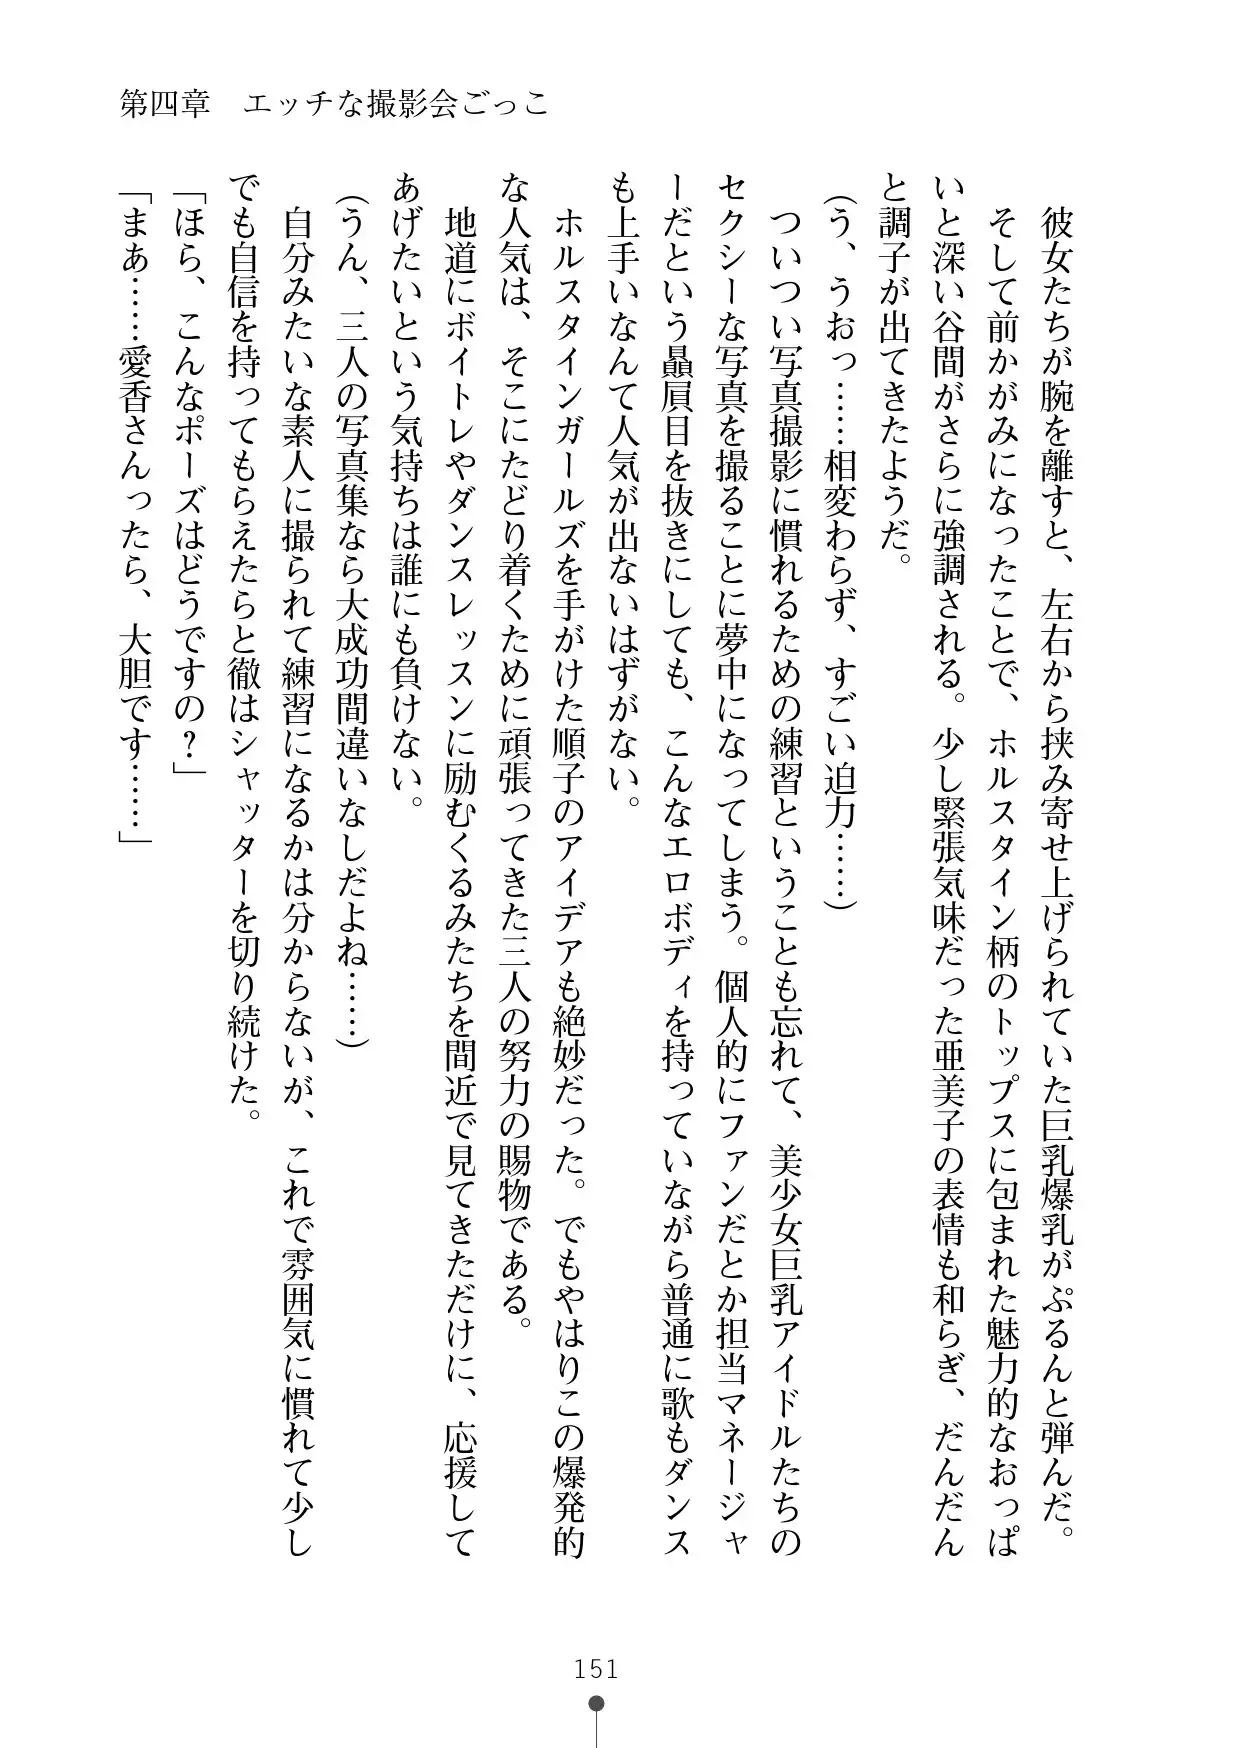 第四章　エッチな撮影会ごっこ
　彼女たちが腕を離すと、左右から挟み寄せ上げられていた巨乳爆乳がぷるんと弾んだ。
　そして前かがみになったことで、ホルスタイン柄のトップスに包まれた魅力的なおっぱ
いと深い谷間がさらに強調される。少し緊張気味だった亜美子の表情も和らぎ、だんだん
と調子が出てきたようだ。
（う、うおっ……相変わらず、すごい迫力……）
　ついつい写真撮影に慣れるための練習ということも忘れて、美少女巨乳アイドルたちの
セクシーな写真を撮ることに夢中になってしまう。個人的にファンだとか担当マネージャ
ーだという贔屓目を抜きにしても、こんなエロボディを持っていながら普通に歌もダンス
も上手いなんて人気が出ないはずがない。
　ホルスタインガールズを手がけた順子のアイデアも絶妙だった。でもやはりこの爆発的
な人気は、そこにたどり着くために頑張ってきた三人の努力の賜物である。
　地道にボイトレやダンスレッスンに励むくるみたちを間近で見てきただけに、応援して
あげたいという気持ちは誰にも負けない。
（うん、三人の写真集なら大成功間違いなしだよね……）
　自分みたいな素人に撮られて練習になるかは分からないが、これで雰囲気に慣れて少し
でも自信を持ってもらえたらと徹はシャッターを切り続けた。
「ほら、こんなポーズはどうですの？」
「まあ……愛香さんったら、大胆です……」
151